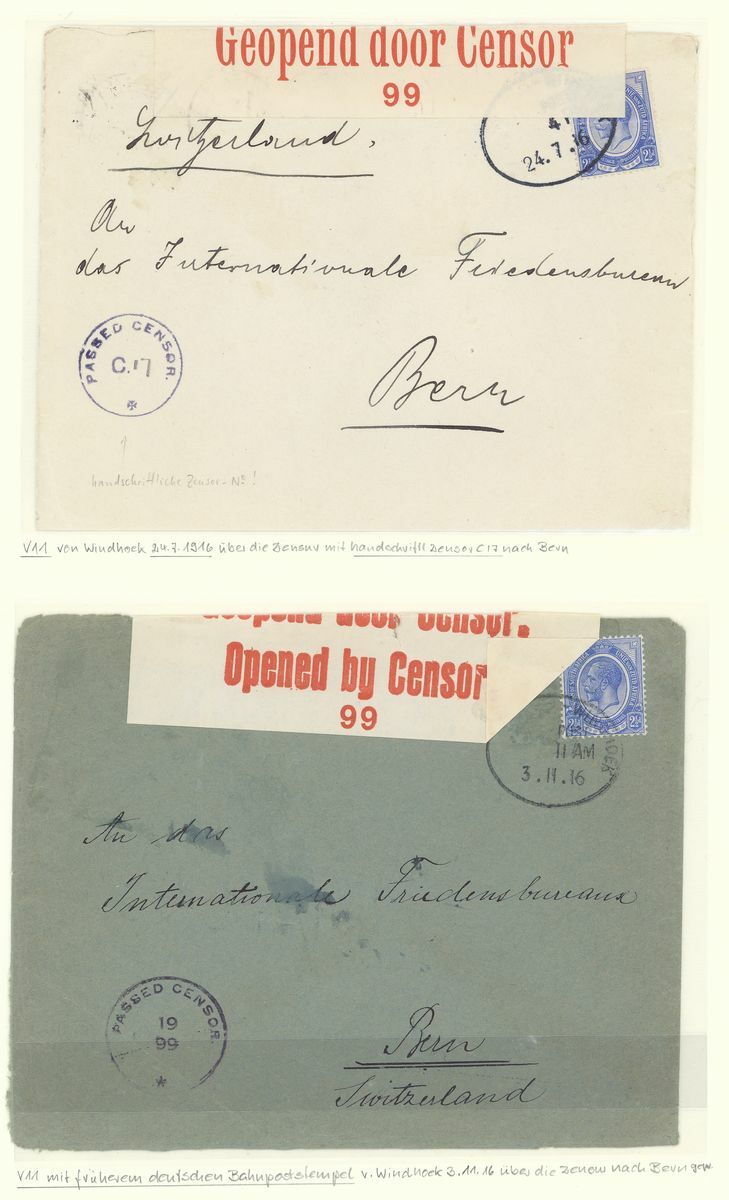 Geopend door Censor
99
24.7.16
2½
2½
Switzerland.
An
das Internationale Friedensbureau
PASSED CENSOR.
C.17
Bern
handschriftliche Zensor-No!
V11 von Windhoek 24.7.1916 über die Zensur mit handschriftl Zensor C17 nach Bern
Geopend door Censor.
Opened by Censor
99
UNIE VAN ZUID AFRIKA
2½
2½
WINDHOEK
11 AM
3.11.16
An das
Internationale Friedensbureaux
PASSED CENSOR.
19
99
Bern
Switzerland
V11 mit früherem deutschen Bahnpoststempel v. Windhoek 3.11.16 über die Zensur nach Bern gew.